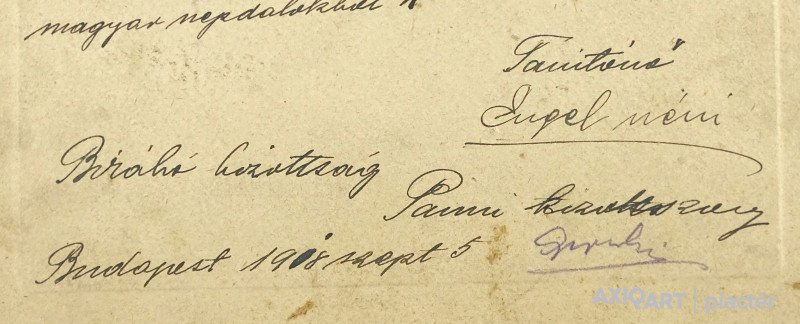 magyar népdalokból
Tanitónő
Engel néni
Biráló bizottság
Panni bizottszag
Budapest 1918 szept 5
AXIOART | piactér